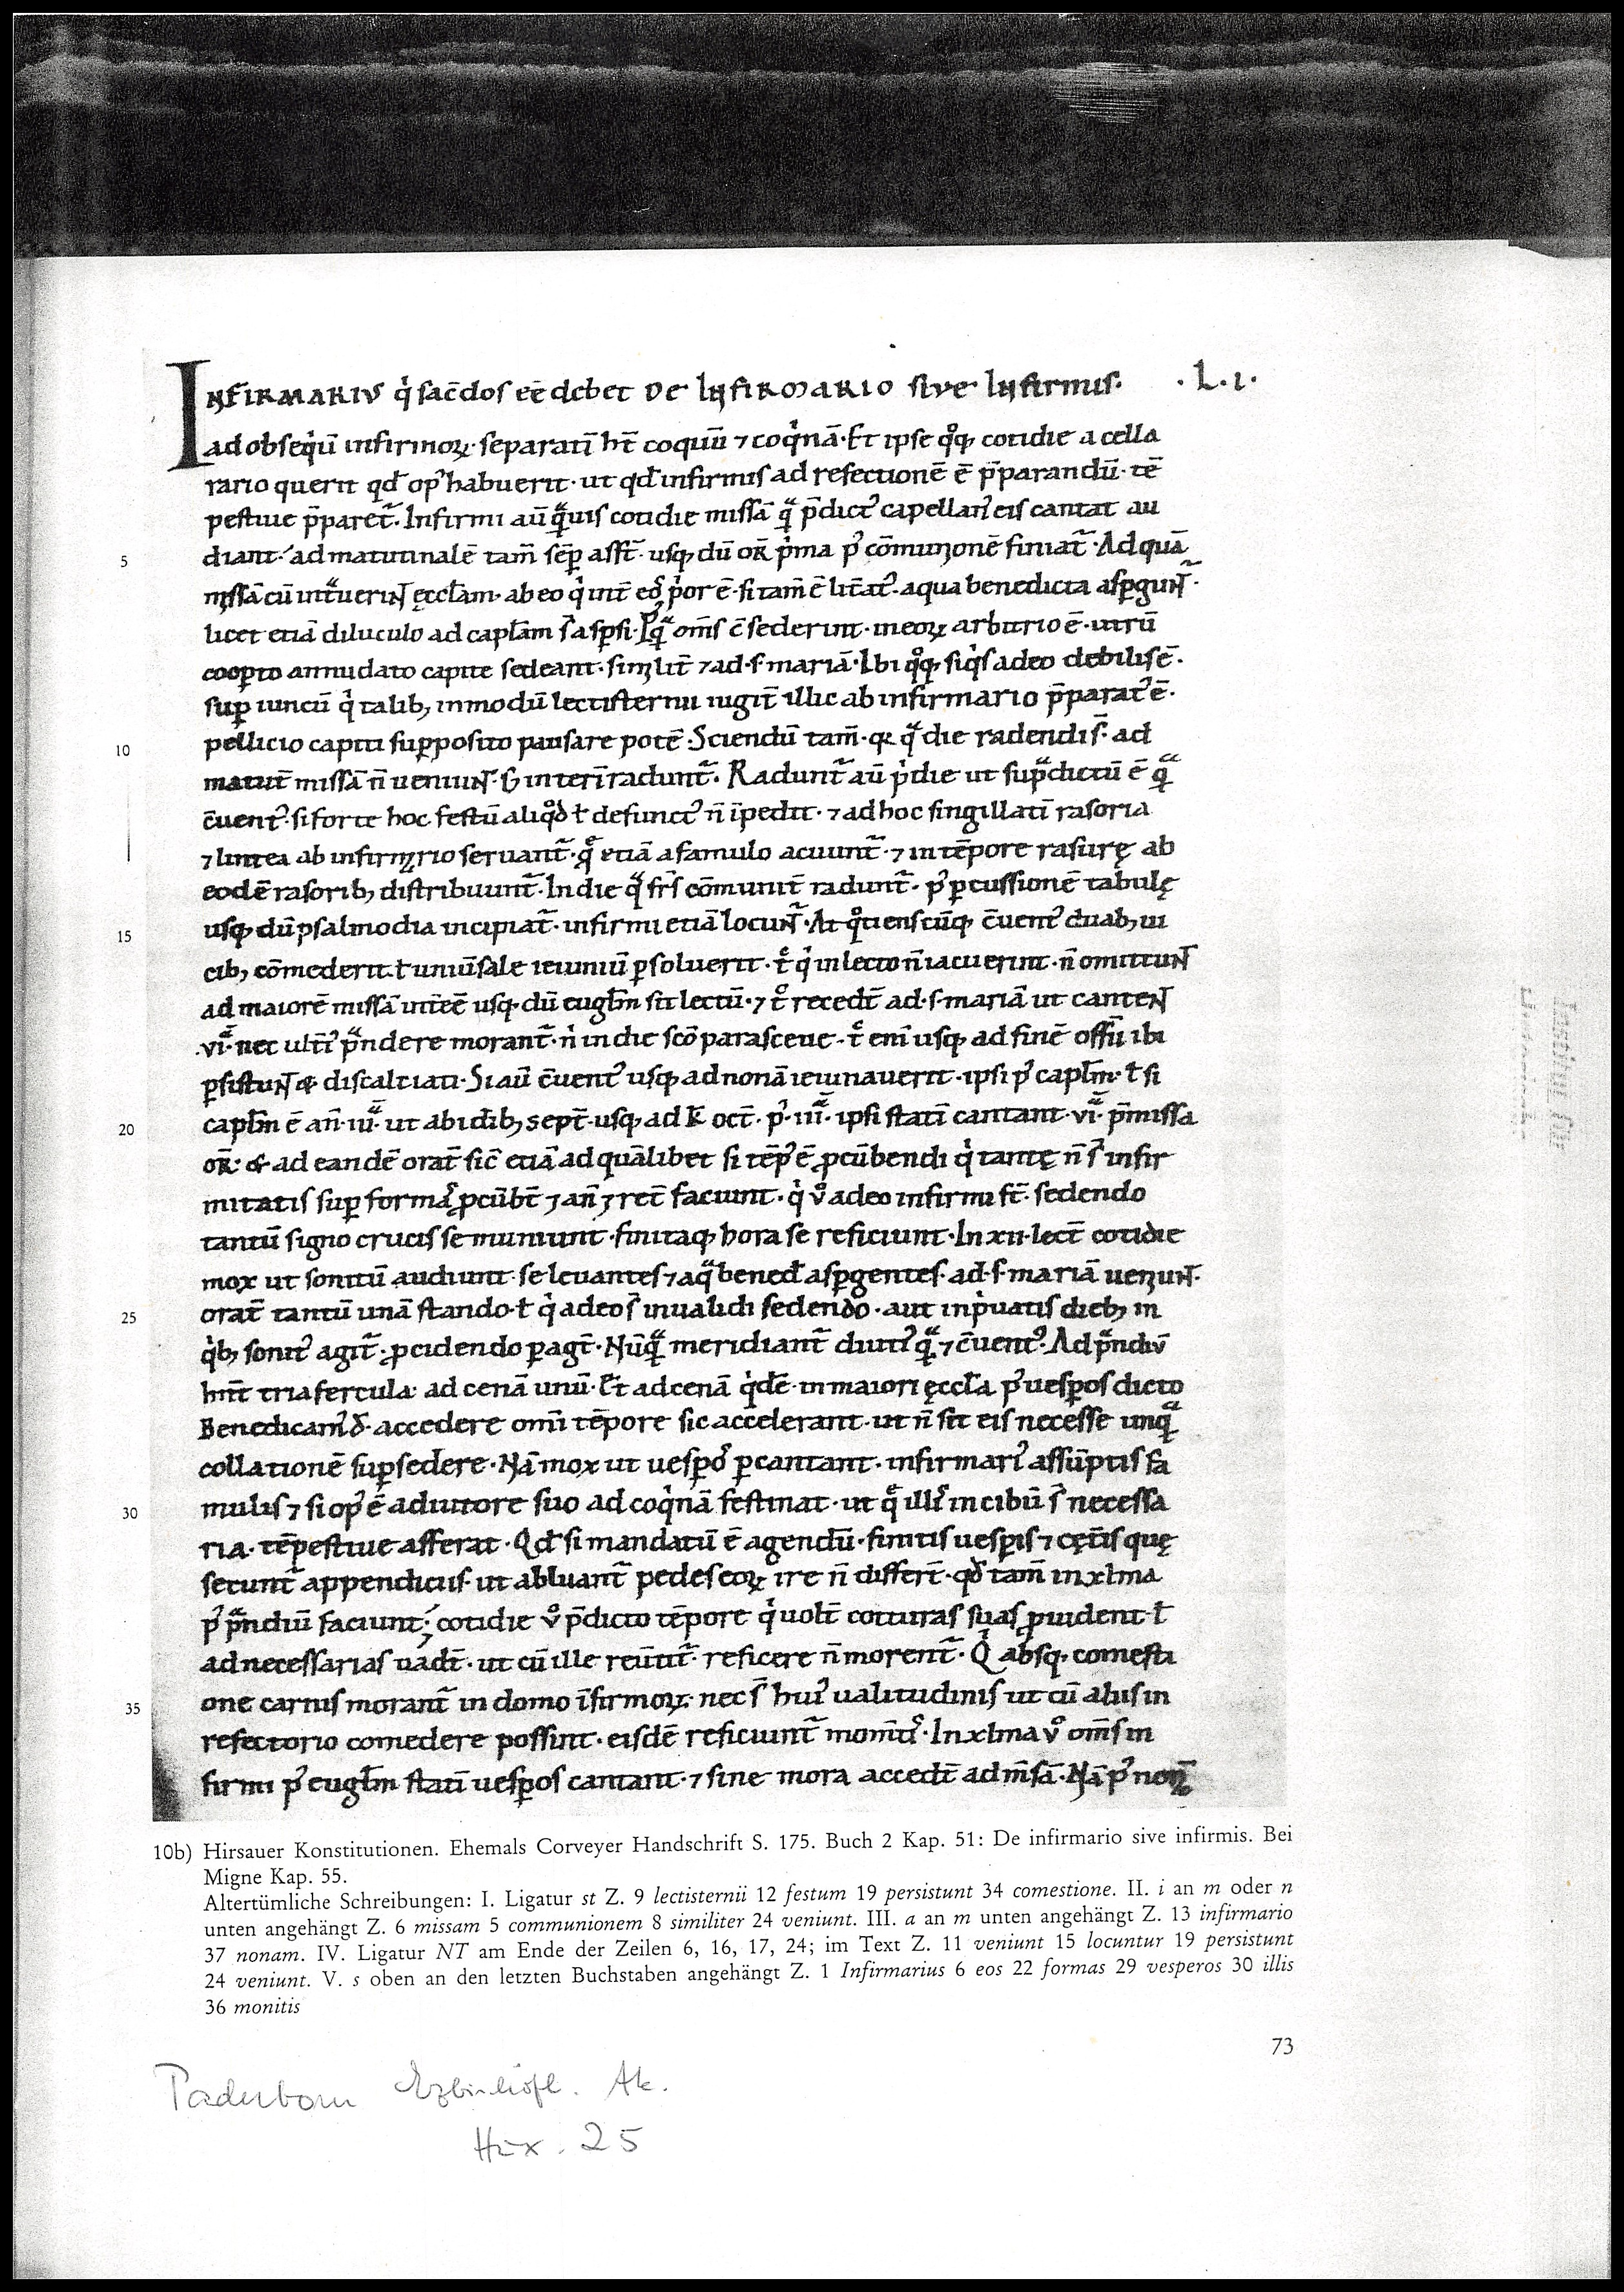 INFIRMARIVS q̇ sac̄dos eē debet De Infirmario sive Infirmis. .L.i.
ad obseq̇ū infirmoꝝ. separatī ht̄ coquū ⁊ coq̇nā. Et ipse qͦqꝫ cotidie a cella
rario querit qd̄ opꝰ habuerit. ut qd̄ infirmis ad refectionē ē p̄parandū. tē
pestiue p̄paret᷑. Infirmi aū qᵃ̄uis cotidie missā qᵃ̄ p̄dictꝰ capellanꝰ eis cantat au
5 diant. ad matutinalē tam̄ sēp̱ asst̄. usqꝫ dū or̄ p̍ma pꝰ cōmunionē finiat᷑. Ad quā
missā cū intᵃuerinT ęccl̄am. ab eo q̇ int̄ eos p̍or ē. si tam̄ ē lit̄atꝰ. aqua benedicta asꝑgunT᷑.
licet etiā diluculo ad capl̄am s̄ aspsi. Pꝰqᵃ̄ om̄s c̄sederint. in eoꝝ arbitrio ē. utrū
cooꝑto an nudato capite sedeant. similit̄ ⁊ ad .s. mariā. Ibi qͦqꝫ siq̇s adeo debilis ē.
suꝑ iuncū q̇ talibꝫ in modū lectisternii iugit̄ illic ab infirmario p̄paratꝰ ē.
10 pellicio capiti supposito pausare potē. Sciendū tam̄. qꝛ qᵃ die radendi s̄. ad
matut̄ missā n̄ ueniunT. s; interī radunt᷑. Radunt᷑ aū p̍die ut supᵃdictū ē qᵃ̄
c̄uentꝰ. si forte hoc festū aliqͦd ł defunctꝰ n̄ īpedit. ⁊ ad hoc singillatī rasoria
⁊ lintea ab infirmario seruant᷑. qͤ etiā a famulo acuunt᷑. ⁊ in tēpore rasurę ab
eodē rasoribꝫ distribuunt᷑. In die qᵃ frs̄ cōmunit̄ radunt᷑. pꝰ ꝑcussionē tabulę
15 usqꝫ dū psalmodia incipiat᷑. infirmi etiā locunT᷑. At qͦtienscūqꝫ c̄uentꝰ duabꝫ ui
cibꝫ cōmederit. ł uniūsale ieiuniū ꝑsoluerit. tͨ q̇ in lecto n̄ iacuerint. n̄ omittunT
ad maiorē missā int̄eē usqꝫ dū euglm̄ sit lectū. ⁊ tͨ recedt̄ ad .s. mariā ut cantenT
.viᵃ̄. nec ultꝰ̄ pᵃndere morant᷑. n̍ in die scō parasceue. tͨ enī usqꝫ ad finē offīi ibi
ꝑsistunT & discalciati. Si aū c̄uentꝰ usqꝫ ad nonā ieiunauerit. ipsi pꝰ caplm̄. ł si
20 caplm̄ ē an̄ .iiiᵃ̄. ut ab idibꝫ sept̄. usqꝫ ad k̄ oct̄. pꝰ .iiiᵃ̄. ipsi statī cantant .viᵃ̄. p̄missa
or̄. & ad eandē orat̄ sic̄ etiā ad quālibet si tēpꝰ ē ꝓcūbendi q̇ tantę n̄ s̄ infir
mitatis suꝑ formas ꝓcūbt̄ ⁊ an̄ ⁊ ret̄ faciunt. q̇ vͦ adeo infirmi st̄. sedendo
tantū signo crucis se muniunt. finitaqꝫ hora se reficiunt. In xii. lect̄ cotidie
mox ut sonitū audiunt. se leuantes ⁊ aqᵃ bened̄ asꝑgentes. ad .s. mariā ueniunT.
25 orat̄ tantū unā stando. ł q̇ adeo s̄ inualidi sedendo. aut in p̍uatis diebꝫ in
q̇bꝫ sonitꝰ agit᷑. ꝓcidendo ꝑagt̄. Nūqᵃ̄ meridiant᷑ diutiꝰ qᵃ̄ ⁊ c̄uentꝰ. Ad pᵃndiū
hn̄t tria fercula. ad cenā unū. Et ad cenā q̇dē. in maiori ęccl̄a pꝰ uesꝑos dicto
Benedicamꝰ d̄. accedere omī tēpore sic accelerant. ut n̄ sit eis necesse unqᵃ̄
collationē suꝑsedere. Nā mox ut uesꝑos ꝑcantant. infirmariꝰ assūptis fa
30 mulis ⁊ si opꝰ ē adiutore suo ad coq̇nā festinat. ut qͤ illis in cibū s̄ necessa
ria. tēpestiue afferat. Qd̄ si mandatū ē agendū. finitis uesꝑis ⁊ cęt̄is quę
secunt᷑ appendiciis. ut abluant᷑ pedes eoꝝ ire n̄ differt̄. qd̄ tam̄ in xlma
pꝰ pᵃndiū faciunt; cotidie vͦ p̄dicto tēpore q̇ uolt̄ cotturas suas ꝓuident. ł
ad necessarias uadt̄. ut cū ille reūtit᷑. reficere n̄ morent᷑. Q̇ absqꝫ comesti
35 one carnis morant᷑ in domo īfirmoꝝ. nec s̄ huiꝰ ualitudinis ut cū aliis in
refectorio comedere possint. eisdē reficiunt᷑ monitis. In xlma vͦ om̄s in
firmi pꝰ euglm̄ statī uesꝑos cantant. ⁊ sine mora accedt̄ ad m̄sā. Nā pꝰ nonā
10b) Hirsauer Konstitutionen. Ehemals Corveyer Handschrift S. 175. Buch 2 Kap. 51: De infirmario sive infirmis. Bei
Migne Kap. 55.
Altertümliche Schreibungen: I. Ligatur st Z. 9 lectisternii 12 festum 19 persistunt 34 comestione. II. i an m oder n
unten angehängt Z. 6 missam 5 communionem 8 similiter 24 veniunt. III. a an m unten angehängt Z. 13 infirmario
37 nonam. IV. Ligatur NT am Ende der Zeilen 6, 16, 17, 24; im Text Z. 11 veniunt 15 locuntur 19 persistunt
24 veniunt. V. s oben an den letzten Buchstaben angehängt Z. 1 Infirmarius 6 eos 22 formas 29 vesperos 30 illis
36 monitis
73
Paderborn Erzbischöfl. Ak.
Hux. 25